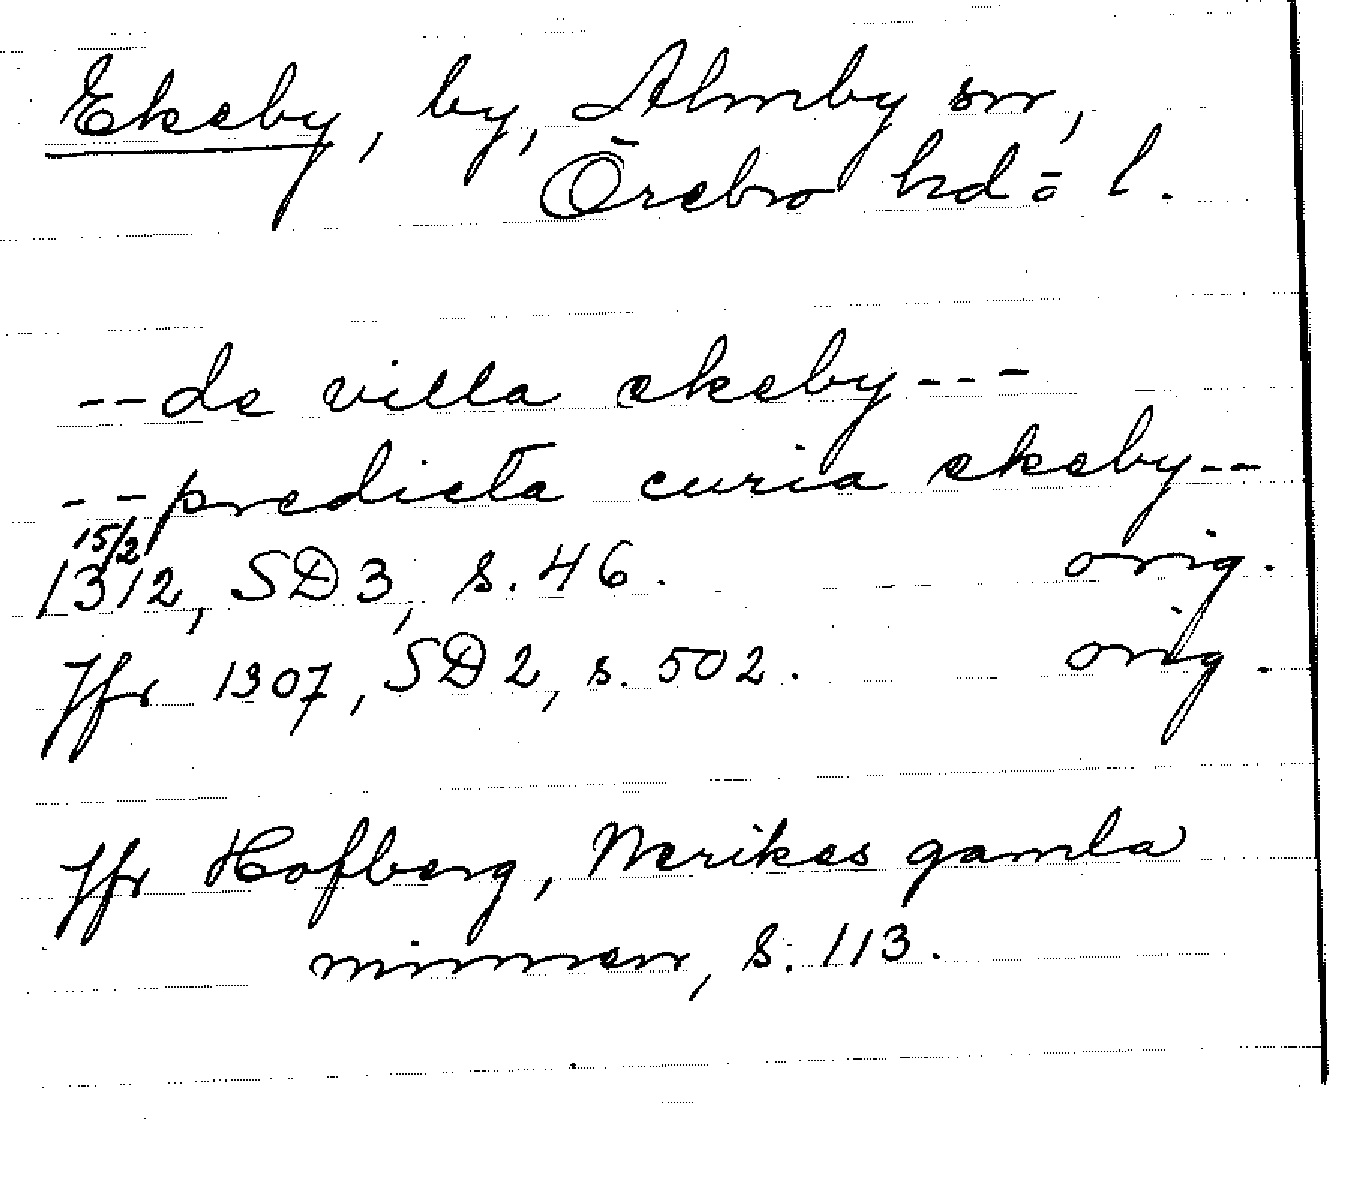 Ekeby, by, Almby sn,
Örebro hd o l.
-- de villa ekeby ---
-- predicta curia ekeby --
15/2
1312, SD 3, s. 46. orig.
Jfr 1307, SD 2, s. 502. orig.
Jfr Hofberg, Nerikes gamla
minnen, s. 113.